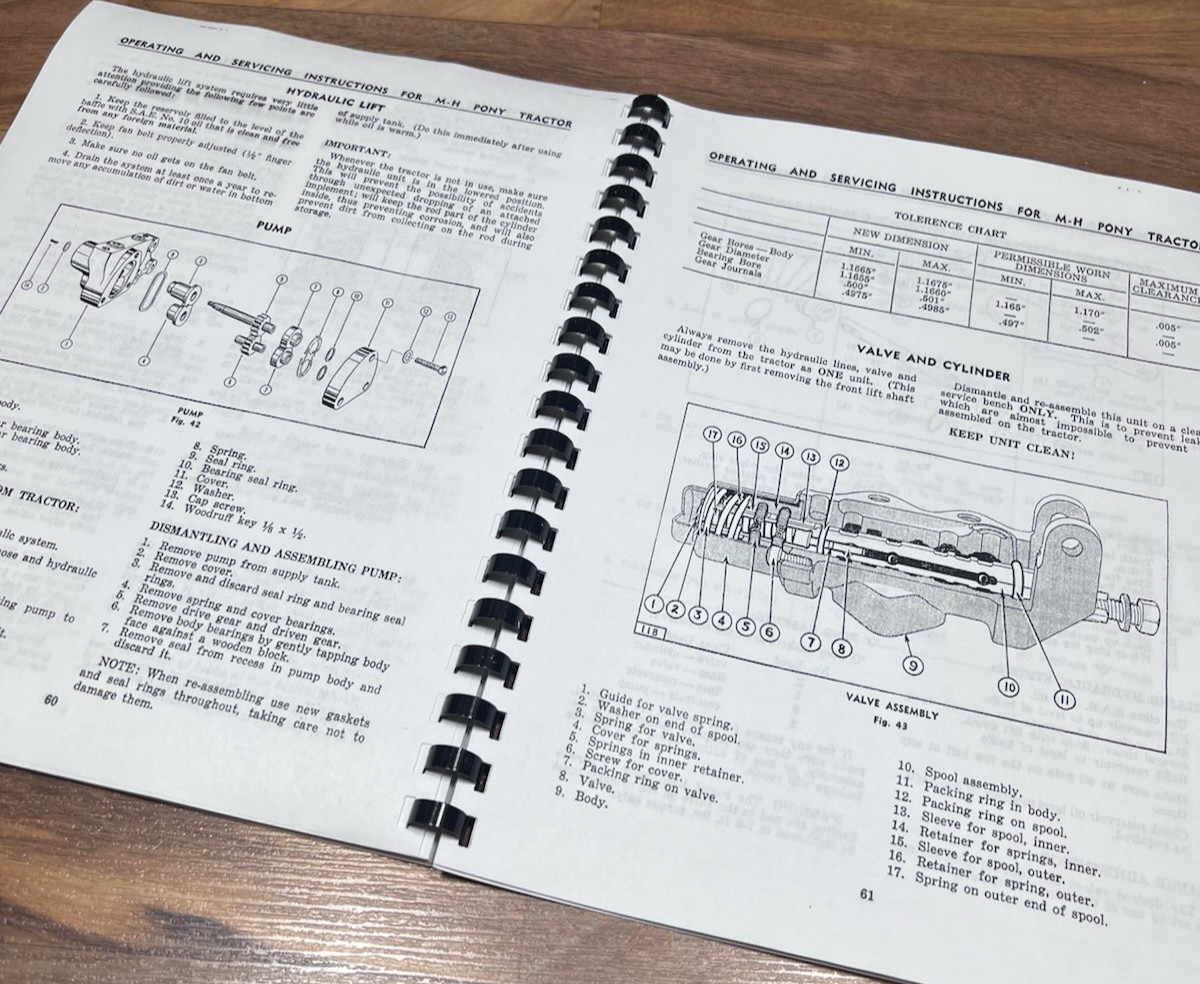 OPERATING AND SERVICING INSTRUCTIONS FOR M-H PONY TRACTOR
HYDRAULIC LIFT
The hydraulic lift system requires very little
attention providing the following few points are
carefully followed:
1. Keep the reservoir filled to the level of the
baffle with S.A.E. No. 10 oil that is clean and free
from any foreign material.
2. Keep fan belt properly adjusted (½" finger
deflection).
3. Make sure no oil gets on the fan belt.
4. Drain the system at least once a year to re-
move any accumulation of dirt or water in bottom
of supply tank. (Do this immediately after using
while oil is warm.)
IMPORTANT:
Whenever the tractor is not in use, make sure
the hydraulic unit is in the lowered position.
This will prevent the possibility of accidents
through unexpected dropping of an attached
implement; will keep the rod part of the cylinder
inside, thus preventing corrosion, and will also
prevent dirt from collecting on the rod during
storage.
PUMP
PUMP
Fig. 42
ody.
r bearing body.
r bearing body.
s.
OM TRACTOR:
lic system.
ose and hydraulic
ing pump to
t.
8. Spring.
9. Seal ring.
10. Bearing seal ring.
11. Cover.
12. Washer.
13. Cap screw.
14. Woodruff key ⅛ x ½.
DISMANTLING AND ASSEMBLING PUMP:
1. Remove pump from supply tank.
2. Remove cover.
3. Remove and discard seal ring and bearing seal
rings.
4. Remove spring and cover bearings.
5. Remove drive gear and driven gear.
6. Remove body bearings by gently tapping body
face against a wooden block.
7. Remove seal from recess in pump body and
discard it.
NOTE: When re-assembling use new gaskets
and seal rings throughout, taking care not to
damage them.
60
OPERATING AND SERVICING INSTRUCTIONS FOR M-H PONY TRACTO
TOLERENCE CHART
NEW DIMENSION
PERMISSIBLE WORN
DIMENSIONS
MAXIMUM
CLEARANC
MIN. MAX. MIN. MAX.
Gear Bores — Body 1.1665" 1.1675" — 1.170" .005"
Gear Diameter 1.1655" 1.1660" 1.165" —
Bearing Bore .500" .501" — .502" .005"
Gear Journals .4975" .4985" .497" — —
VALVE AND CYLINDER
Always remove the hydraulic lines, valve and
cylinder from the tractor as ONE unit. (This
may be done by first removing the front lift shaft
assembly.)
Dismantle and re-assemble this unit on a clea
service bench ONLY. This is to prevent leak
which are almost impossible to prevent
assembled on the tractor.
KEEP UNIT CLEAN!
17 16 15 14 13 12
1 2 3 4 5 6 7 8 9 10 11
118
VALVE ASSEMBLY
Fig. 43
1. Guide for valve spring.
2. Washer on end of spool.
3. Spring for valve.
4. Cover for springs.
5. Springs in inner retainer.
6. Screw for cover.
7. Packing ring on valve.
8. Valve.
9. Body.
10. Spool assembly.
11. Packing ring in body.
12. Packing ring on spool.
13. Sleeve for spool, inner.
14. Retainer for springs, inner.
15. Sleeve for spool, outer.
16. Retainer for spring, outer.
17. Spring on outer end of spool.
61